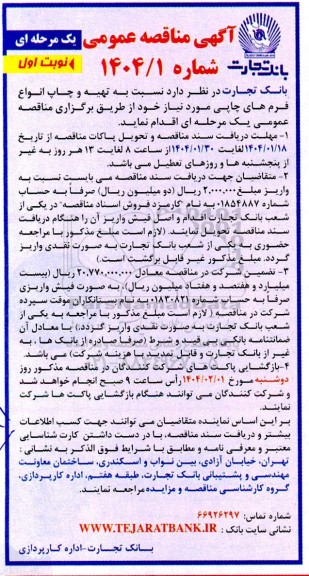 آگهی مناقصه عمومی
یک مرحله ای
شماره ۱۴۰۴/۱
نوبت اول
بانک تجارت
بانک تجارت در نظر دارد نسبت به تهیه و چاپ انواع
فرم های چاپی مورد نیاز خود از طریق برگزاری مناقصه
عمومی یک مرحله ای اقدام نماید.
۱- مهلت دریافت سند مناقصه و تحویل پاکات مناقصه از تاریخ
۱۴۰۴/۰۱/۱۸ لغایت ۱۴۰۴/۰۱/۳۰ از ساعت ۸ لغایت ۱۳ هر روز به غیر
از پنجشنبه ها و روزهای تعطیل می باشد.
۲- متقاضیان جهت دریافت سند مناقصه می بایست نسبت به
واریز مبلغ ۲,۰۰۰,۰۰۰ ریال (دو میلیون ریال) صرفاً به حساب
شماره ۰۱۸۵۴۸۸۷ به نام "کارمزد فروش اسناد مناقصه" در یکی از
شعب بانک تجارت اقدام و اصل فیش واریز آن را هنگام دریافت
سند مناقصه تحویل نمایند. (لازم است مبلغ مذکور با مراجعه
حضوری به یکی از شعب بانک تجارت به صورت نقدی واریز
گردد. مبلغ مذکور غیر قابل برگشت است.)
۳- تضمین شرکت در مناقصه معادل ۲۰,۷۷۰,۰۰۰,۰۰۰ ریال (بیست
میلیارد و هفتصد و هفتاد میلیون ریال) به صورت فیش واریزی
صرفاً به حساب شماره ۰۱۸۳۰۸۲۱ به نام بستانکاران موقت سپرده
شرکت در مناقصه ( لازم است مبلغ مذکور با مراجعه به یکی از
شعب بانک تجارت به صورت نقدی واریز گردد.) یا معادل آن
ضمانتنامه بانکی بی قید و شرط (صرفا صادره از بانک ها ، به
غیر از بانک تجارت و قابل تمدید با هزینه شرکت) می باشد.
۴-بازگشایی پاکت های شرکت کنندگان در مناقصه مذکور روز
دوشنبه مورخ ۱۴۰۴/۰۲/۰۱ رأس ساعت ۹ صبح انجام خواهد شد
و شرکت کنندگان می توانند هنگام بازگشایی پاکت ها شرکت
نمایند.
بر این اساس نماینده متقاضیان می توانند جهت کسب اطلاعات
بیشتر و دریافت سند مناقصه، با در دست داشتن کارت شناسایی
معتبر و معرفی نامه و مطابق با شرایط فوق الذکر به نشانی :
تهران، خیابان آزادی، بین نواب و اسکندری، ساختمان معاونت
مهندسی و پشتیبانی بانک تجارت، طبقه هفتم، اداره کارپردازی،
گروه کارشناسی مناقصه و مزایده مراجعه نمایند.
شماره تماس: ۶۶۹۲۶۲۹۷
نشانی سایت بانک : WWW.TEJARATBANK.IR
بانک تجارت-اداره کارپردازی